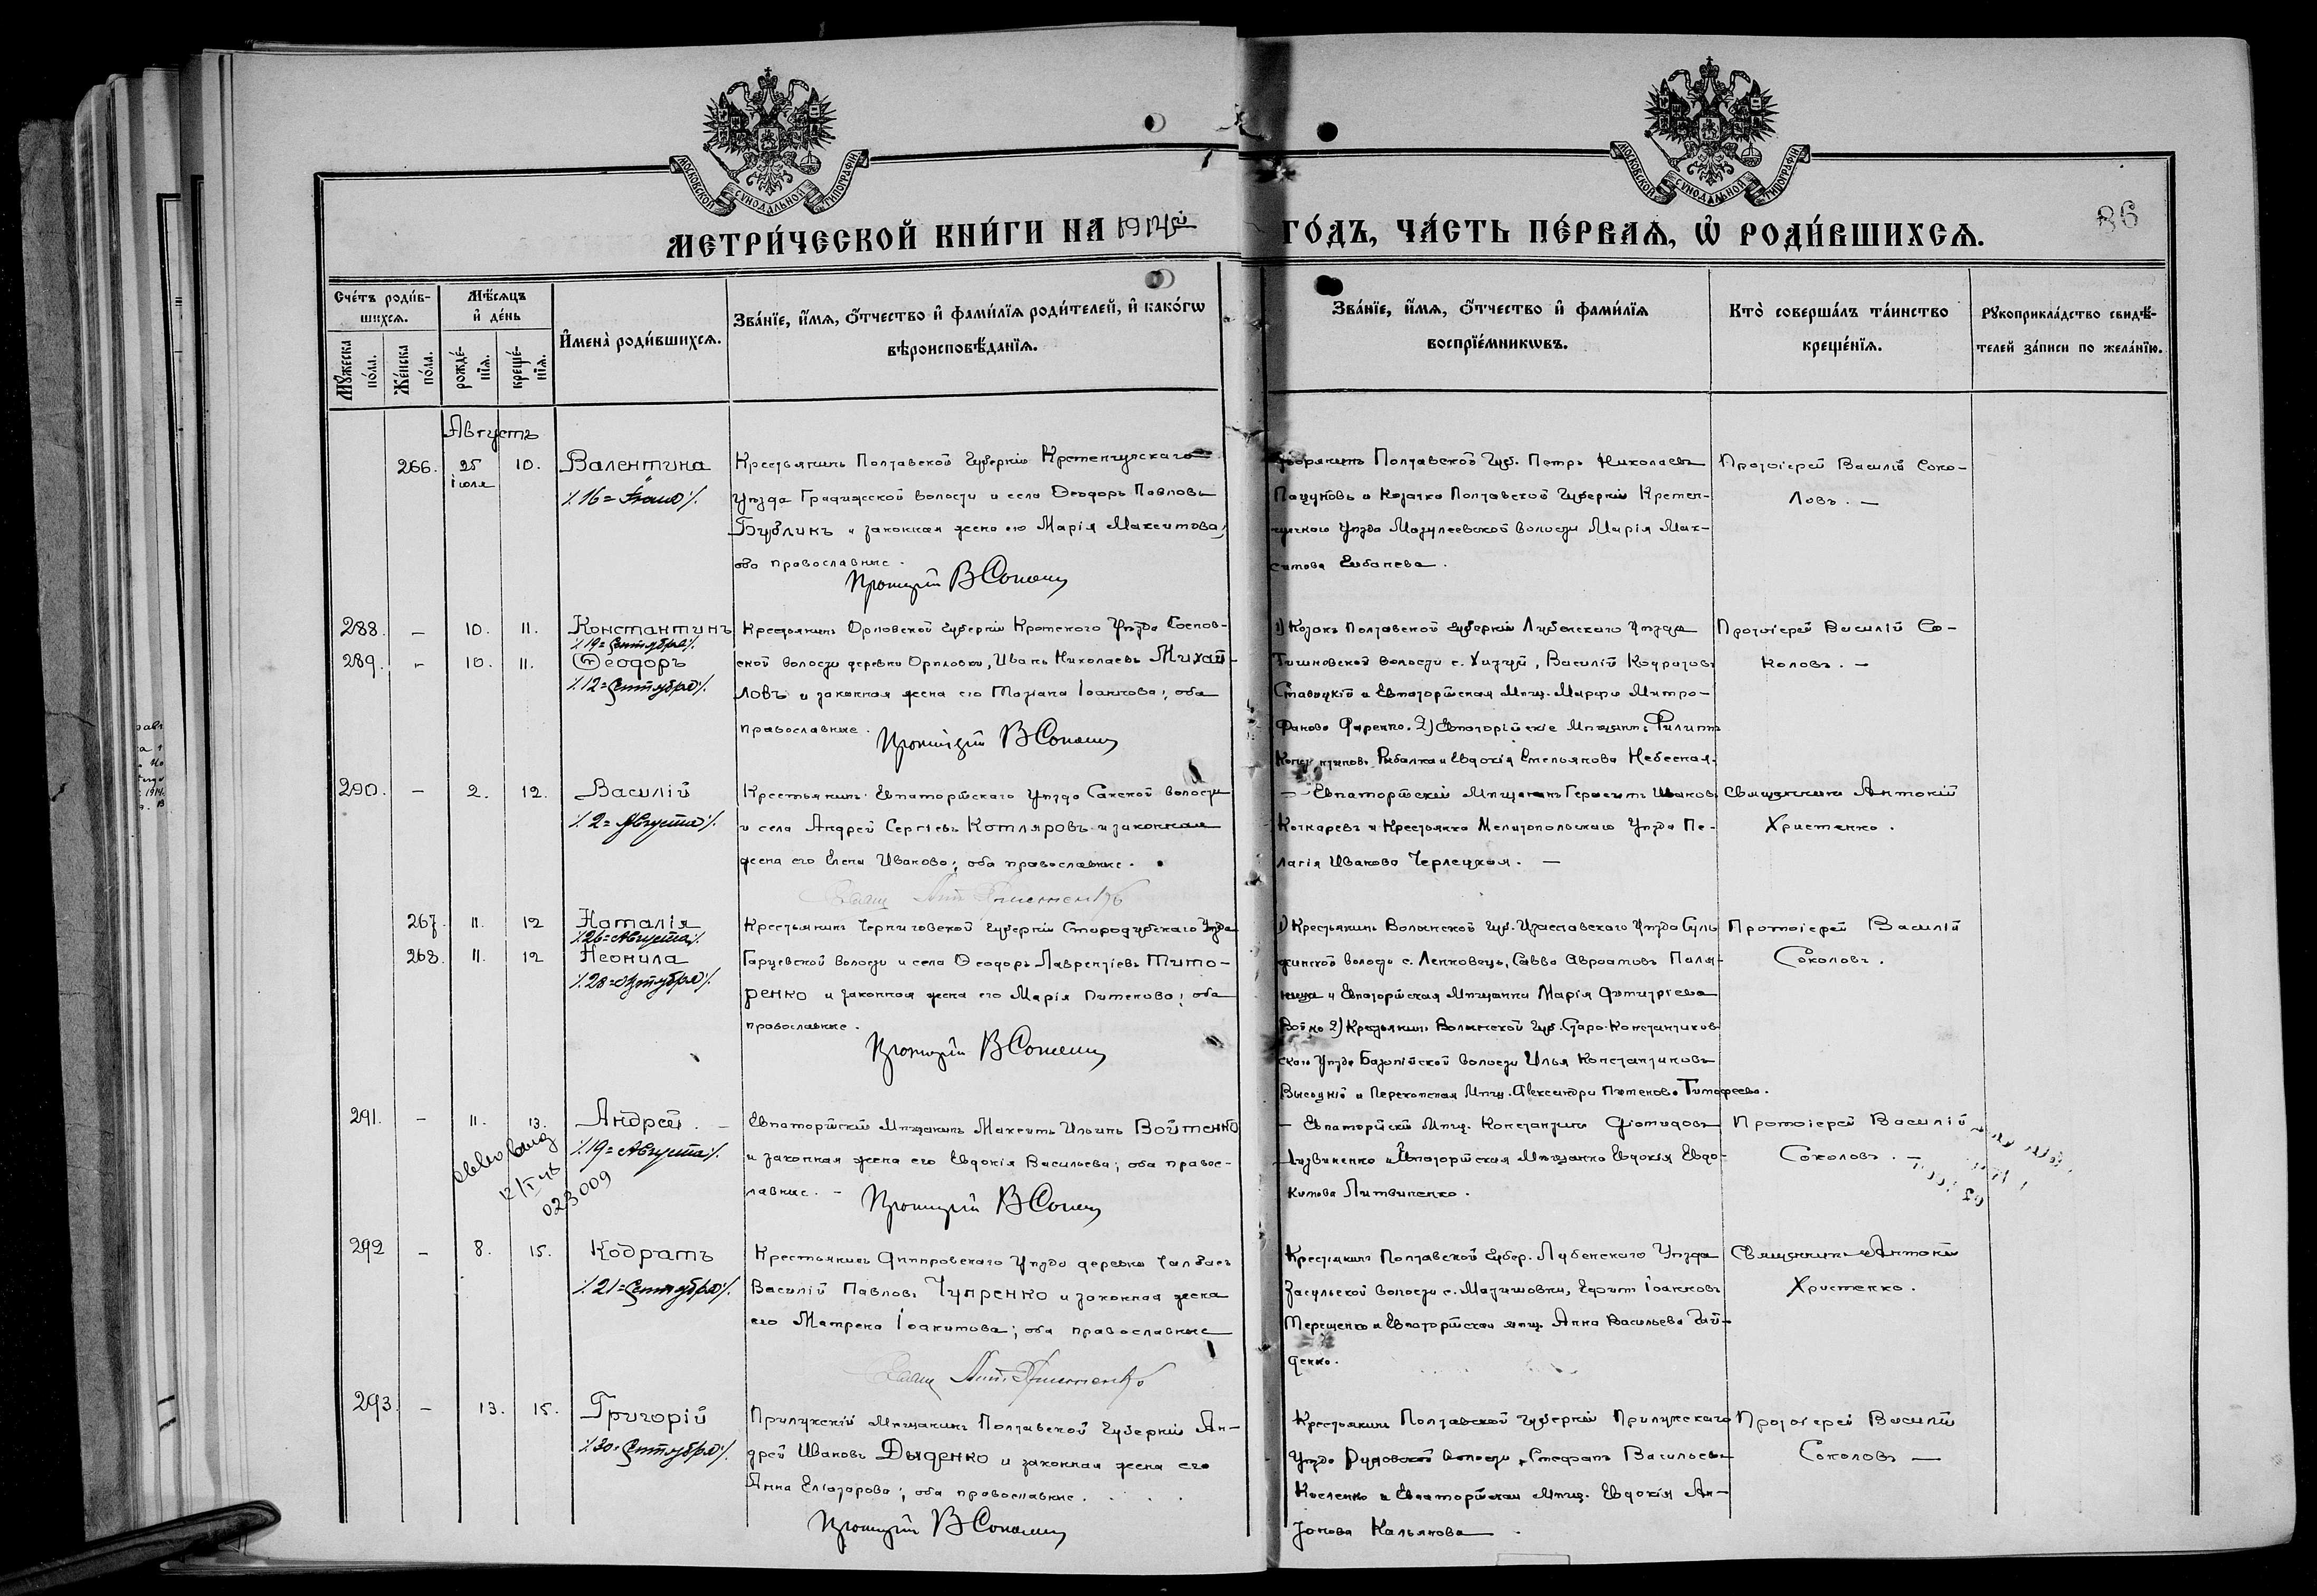 МОСКОВСКОЙ СУНОДАЛЬНОЙ ТИПОГРАФІИ
МОСКОВСКОЙ СУНОДАЛЬНОЙ ТИПОГРАФІИ
МЕТРИ́ЧЕСКОЙ КНИ́ГИ НА 1914й
ГО́ДЪ, ЧА́СТЬ ПЕ́РВАѦ, Ѡ РОДИ́ВШИХСѦ.
86
Сче́тъ роди́в-
шихсѧ.
Мꙋ́жеска по́ла.
Же́нска по́ла.
Мѣ́сѧцъ и де́нь
рожде́-нїѧ.
креще́-нїѧ.
И҆мена̀ роди́вшихсѧ.
Зва́нїе, и҆́мѧ, ѻ҆́тчество и҆ фами́лїѧ роди́телей, и҆ како́гѡ
вѣроисповѣ́данїѧ.
Зва́нїе, и҆́мѧ, ѻ҆́тчество и҆ фами́лїѧ
воспрїе́мникѡвъ.
Кто̀ соверша́лъ та́инство
креще́нїѧ.
Рꙋкоприкла́дство свидѣ́-
телей за́писи по жела́нїю.
Августъ
266. 25 іюля 10. Валентина
Крестьянинъ Полтавской Губерніи Кременчугскаго
уѣзда Градижской волости и села Ѳеодоръ Павловъ
Бубликъ и законная жена его Марія Максимова,
оба православные.
Протоіерей В Соколовъ
Дворянинъ Полтавской Губ. Петръ Николаевъ
и Козачка Полтавской Губерніи Кремен-
чугскаго уѣзда волости Марія Мак-
симова
Протоіерей Василій Соко-
ловъ. —
288. — 10. 11. Константинъ
19 = Сентября
289. — 10. 11. Ѳеодоръ
12 = Сентября
Крестьянинъ Орловской Губерніи Кромского Уѣзда
ской волости деревни Орловки, Иванъ Николаевъ Михай-
ловъ и законная жена его Татіана Іоаннова; оба
православные.
Протоіерей В Соколовъ
1) Козакъ Полтавской Губерніи Лубенскаго Уѣзда
волости с. Василій Кодратовъ
и Евпаторійская Мѣщ. Марфа Митро-
фанова 2) Евпаторійскіе Мѣщане: Филиппъ
Рибалка и Евдокія Емельянова Небесная.
Протоіерей Василій Со-
коловъ. —
290. — 2. 12. Василій
2 = Августа
Крестьянинъ Евпаторійскаго Уѣзда Сакской волости
и села Андрей Сергіевъ Котляровъ и законная
жена его Елена Иванова; оба православные.
Свящ. Ант. Христенко
— Евпаторійскій Мѣщанинъ Герасимъ Ивановъ
Кочкаревъ и Крестьянка Мелитопольскаго Уѣзда Пе-
лагія Иванова Черлецкая. —
Священникъ Антоній
Христенко.
267. 11. 12 Наталія
26 = Августа
268. 11. 12 Неонила
28 = Октября
Крестьянинъ Черниговской Губерніи Стародубскаго Уѣзда
Гарцевской волости и села Ѳеодоръ Лаврентіевъ Тито-
ренко и законная жена его Марія Пименова; оба
православные.
Протоіерей В Соколовъ
1) Крестьянинъ Волынской Губ. Изаславскаго Уѣзда Суль-
жинской волости с. Ленковецъ, Савва Авраамовъ Паля-
ница и Евпаторійская Мѣщанка Марія Димитріева
Бойко 2) Крестьянинъ Волынской Губ. Старо-Константинов-
скаго Уѣзда Базалійской волости Илья Константиновъ
Высоцкій и Перекопская Мѣщ. Александра Пименова Тимофеева.
Протоіерей Василій
Соколовъ.
291. — 11. 13. Андрей. —
19 = Августа
023009
Евпаторійскій Мѣщанинъ Максимъ Ильинъ Войтенко
и законная жена его Евдокія Васильева; оба право-
славные. —
Протоіерей В Соколовъ
— Евпаторійскій Мѣщ. Константинъ Діомидовъ
Литвиненко и Евпаторійская Мѣщанка Евдокія Евдо-
кимова Литвиненко.
Протоіерей Василій
Соколовъ. —
292 — 8. 15. Кодратъ
21 = Сентября
Крестьянинъ Днѣпровскаго Уѣзда деревни Чалбасъ
Василій Павловъ Чупренко и законная жена
его Матрена Іоакимова; оба православные
Свящ. Ант. Христенко
Крестьянинъ Полтавской Губер. Лубенскаго Уѣзда
Засульской волости с. Мацковки, Ефимъ Іоанновъ
Терещенко и Евпаторійская мѣщ. Анна Васильева Гай-
денко.
Священникъ Антоній
Христенко.
293. — 13. 15. Григорій
30 = Сентября
Прилукскій Мѣщанинъ Полтавской Губерніи Ан-
дрей Ивановъ Дыденко и законная жена его
Анна Еліазарова; оба православные.
Протоіерей В Соколовъ
Крестьянинъ Полтавской Губерніи Прилукскаго
Уѣзда Рудовской волости, Стефанъ Васильевъ
Кисленко и Евпаторійская Мѣщ. Евдокія Ан-
тонова Кальянова
Протоіерей Василій
Соколовъ —